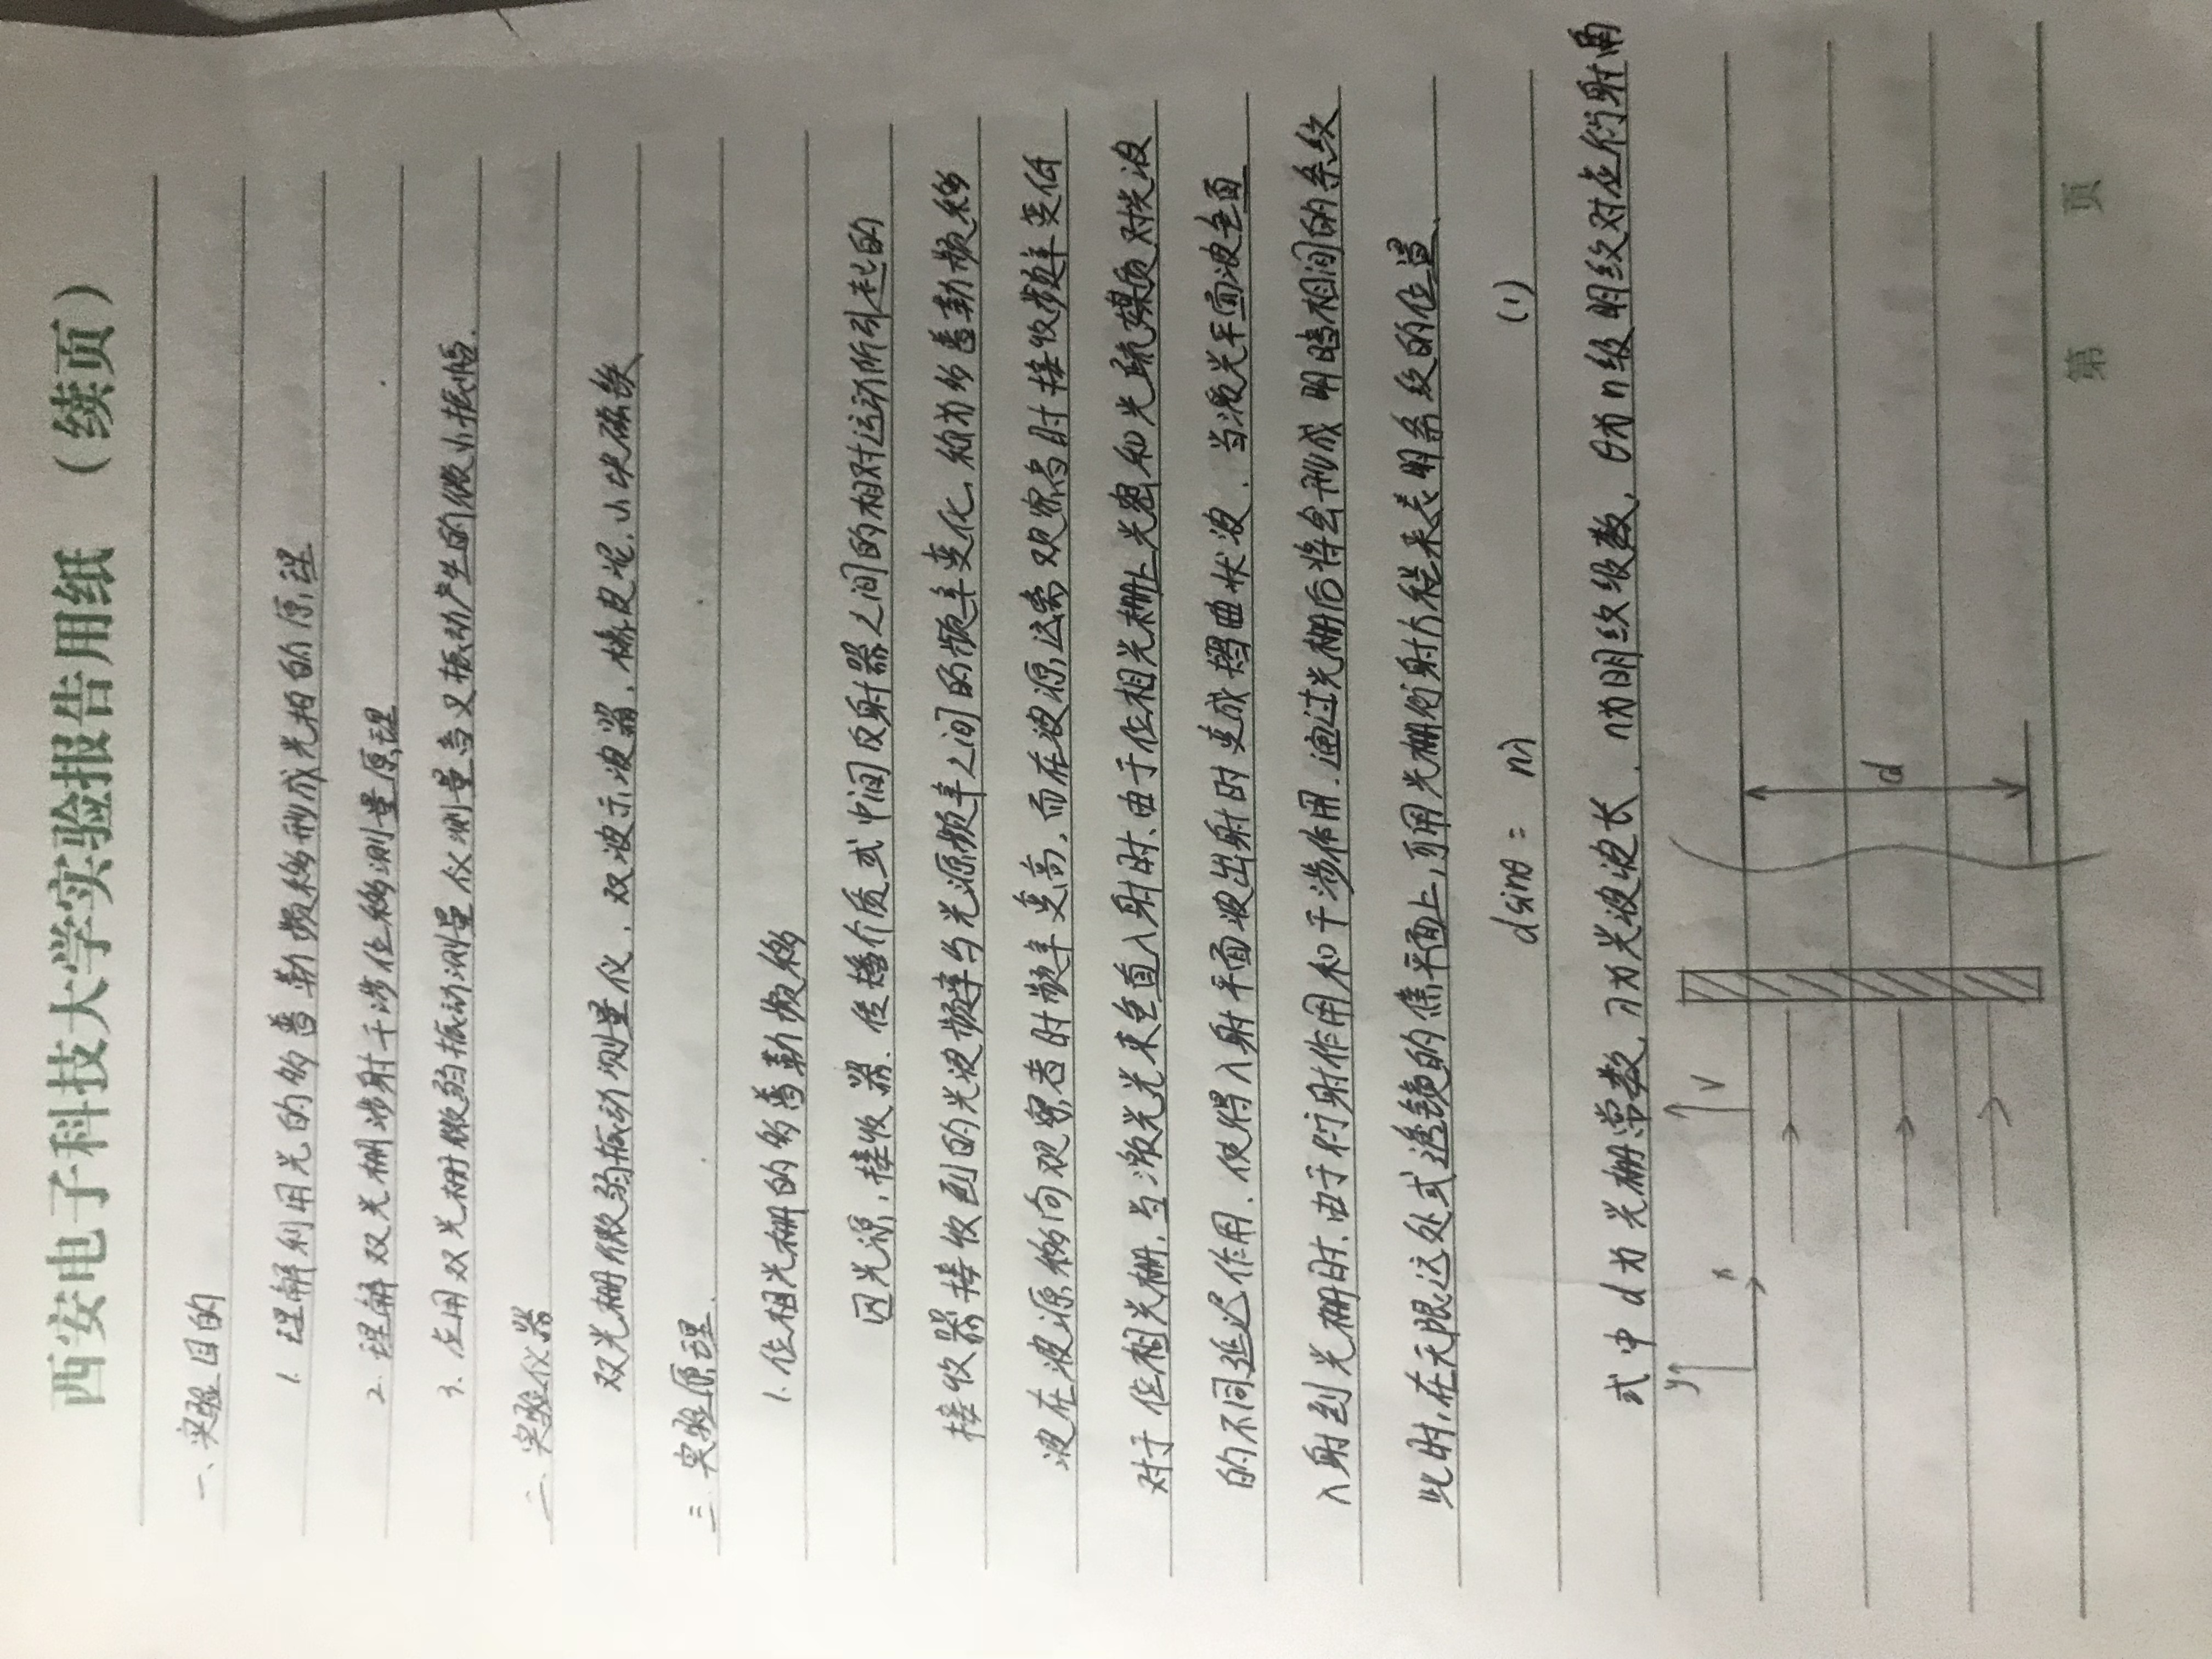 西安电子科技大学实验报告用纸 （续页）
一、实验目的
1. 理解利用光的多普勒频移形成光拍的原理
2. 理解双光栅涉射干涉位移测量原理
3. 应用双光栅微弱振动测量仪测量音叉振动产生的微小振幅.
二、实验仪器
双光栅微弱振动测量仪、双波示波器、橡皮泥、小块磁铁
三、实验原理.
1. 位相光栅的多普勒频移
因光源、接收器、传播介质或中间反射器之间的相对运动所引起的
接收器接收到的光波频率与光源频率之间的频率变化、称为多普勒频移
波在波源移向观察者时频率变高，而在波源远离观察者时接收频率变低
对于位相光栅，当激光光束垂直入射时、由于位相光栅上光密和光疏媒质对光波
的不同延迟作用、使得入射平面波出射时变成摺曲状波、当激光平面波垂直
入射到光栅时、由于衍射作用和干涉作用、通过光栅后将会形成明暗相间的条纹
此时，在无限远处或透镜的焦平面上，可用光栅衍射方程来表明条纹的位置、
dsinθ = nλ (1)
式中d为光栅常数，λ为光波波长、n为明纹级数，θ为n级明纹对应衍射角
y x V
d
第 页